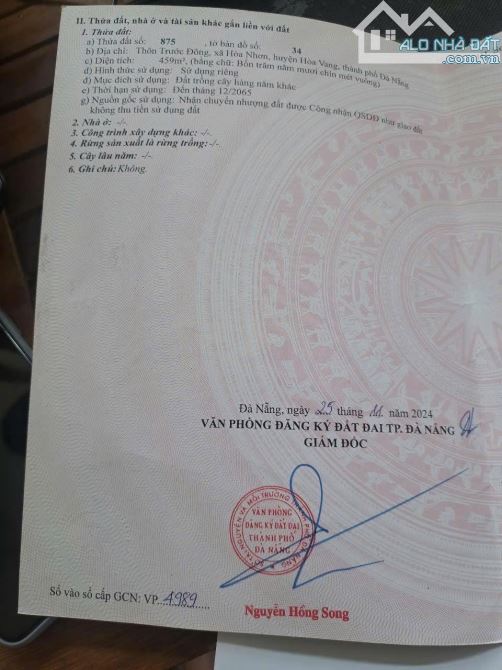 ALO NHÀ ĐẤT
II. Thửa đất, nhà ở và tài sản khác gắn liền với đất
1. Thửa đất:
a) Thửa đất số: 875 , tờ bản đồ số: 34
b) Địa chỉ: Thôn Trước Đông, xã Hòa Nhơn, huyện Hòa Vang, thành phố Đà Nẵng
c) Diện tích: 459m², (bằng chữ: Bốn trăm năm mươi chín mét vuông)
d) Hình thức sử dụng: Sử dụng riêng
đ) Mục đích sử dụng: Đất trồng cây hàng năm khác
e) Thời hạn sử dụng: Đến tháng 12/2065
g) Nguồn gốc sử dụng: Nhận chuyển nhượng đất được Công nhận QSDĐ như giao đất
không thu tiền sử dụng đất
2. Nhà ở: -/-
3. Công trình xây dựng khác: -/-
4. Rừng sản xuất là rừng trồng: -/-
5. Cây lâu năm: -/-
6. Ghi chú: Không.
Đà Nẵng, ngày 25 tháng 11 năm 2024
VĂN PHÒNG ĐĂNG KÝ ĐẤT ĐAI TP. ĐÀ NẴNG
GIÁM ĐỐC
VĂN PHÒNG
ĐĂNG KÝ ĐẤT ĐAI
THÀNH PHỐ
ĐÀ NẴNG
Số vào sổ cấp GCN: VP 4989
Nguyễn Hồng Song